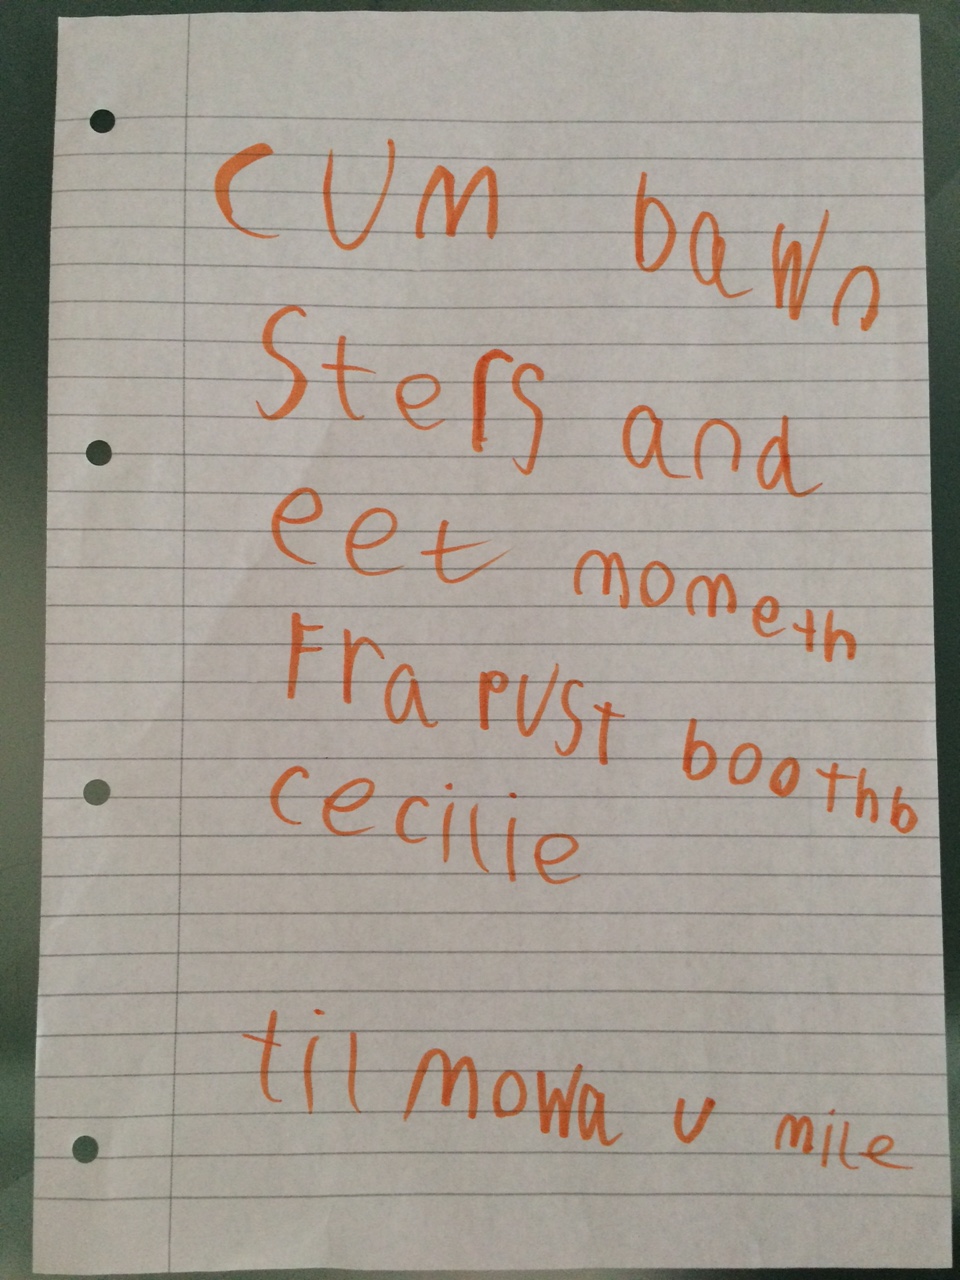 cum bawn
Sters and
eet mometh
Fra PUST boothb
cecilie
til mowa u mile